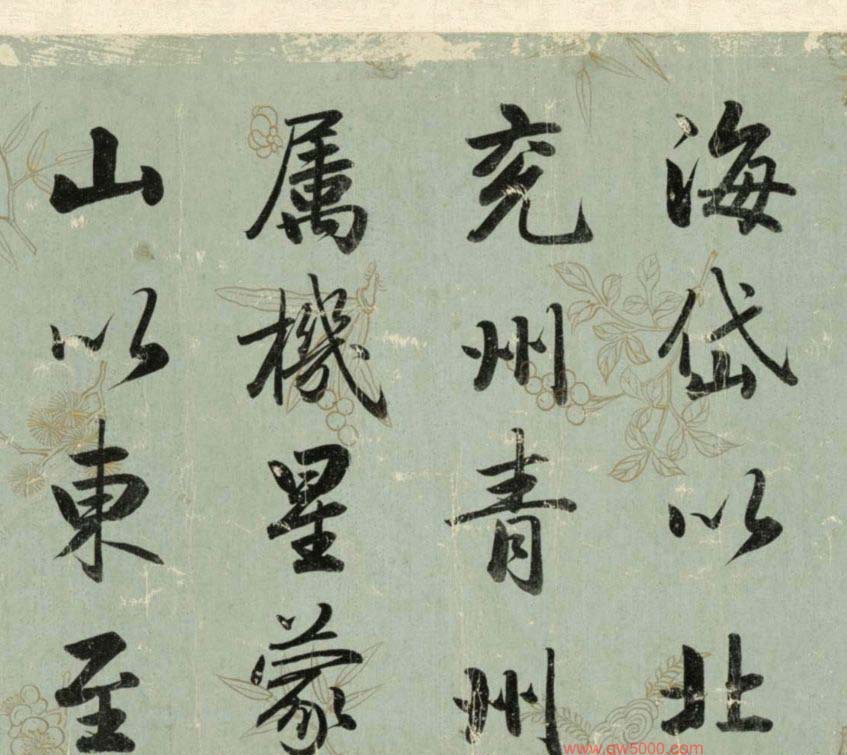 海岱以北
兖州青州
属機星蒙
山以東至
www.gw5000.com